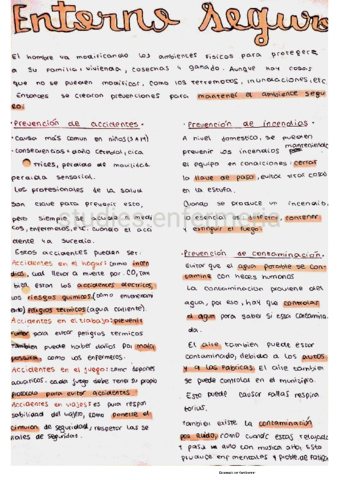 Entorno seguro
El hombre va modificando los ambientes físicos para proteger a
a su familia: vivienda, cosechas y ganado. Aunque hay cosas
que no se pueden modificar, como los terremotos, inundaciones, etc.
Entonces se crearon prevenciones para mantener el ambiente segu
ro:
·Prevención de accidentes.
·causa más común en niños
·consecuencias: daño cerebral, cica
trices, perdida de movilidad
perdida sensorial.
Los profesionales de la salud
son clave para prevenir esto,
pero siempre se acude a médi
cos, enfermeros, etc. cuando el acci
dente ya sucedió.
Estos accidentes pueden ser:
Accidentes en el hogar: como incen
dios, cual lleva a muerte por CO, tam
bién están los accidentes eléctricos,
los riesgos químicos (como envenenam
iento) riesgos térmicos (agua caliente).
Accidentes en el trabajo: prevenir
para evitar peligros térmicos
también puede haber daños por mala
postura, como los enfermeros.
Accidentes en el juego: como deportes
acuáticos. cada juego debe tener su propio
protocolo para evitar accidentes
Accidentes en viajes: es pura respon
sabilidad del viajero, como ponerse el
cinturón de seguridad, respetar las se
ñales de seguridad.
·Prevención de incendios.
A nivel domestico, se pueden
prevenir los incendios manteniendo
el equipo en condiciones: cerrar
la llave de paso, evitar vivir cosas
en la estufa.
Cuando se produce un incendio,
es esencial: advertir, contener
y extinguir el fuego.
·Prevención de contaminación.
evitar que el agua potable se con-
tamine con heces humanas
La contaminación proviene del
agua, por eso, hay que controlar
el agua para saber si está contamina
da.
El aire también puede estar
contaminado, debido a los autos
y a las fabricas. El aire también
se puede controlar en el municipio.
Esto puede causar fallas respira
torias.
También existe la contaminación
por ruido, como cuando estás relajado
y pasa un auto con musica alta. Esto
produce enf. mentales y
studies.enfermeria
Escaneado con CamScanner